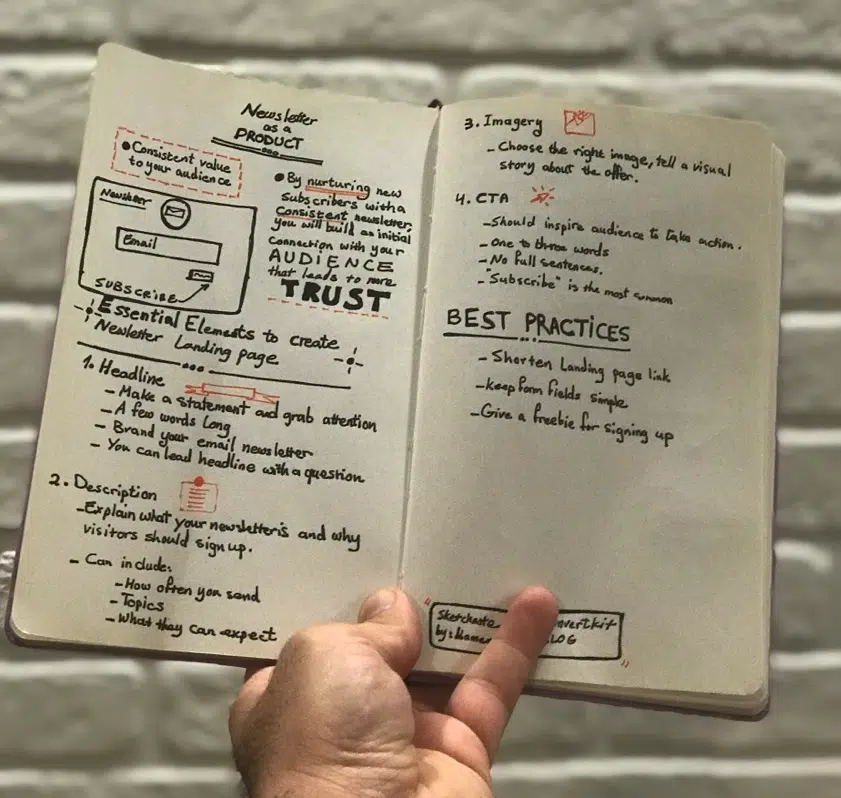 Newsletter
as a
PRODUCT
• Consistent value
to your audience
Newsletter
Email
SUBSCRIBE
• By nurturing new
Subscribers with a
Consistent newsletter,
you will build an initial
Connection with your
AUDIENCE
that leads to more
TRUST
Essential Elements to create
Newsletter Landing page
1. Headline
- Make a statement and grab attention
- A few words long
- Brand your email newsletter
- You can lead headline with a question
2. Description
- Explain what your newsletter is and why
visitors should sign up.
- Can include:
- How often you send
- Topics
- What they can expect
3. Imagery
- Choose the right image, tell a visual
story about the offer.
4. CTA
- Should inspire audience to take action.
- One to three words
- No full sentences.
- "Subscribe" is the most common
BEST PRACTICES
- Shorten Landing page link
- Keep form fields simple
- Give a freebie for signing up
Sketchnote
by: